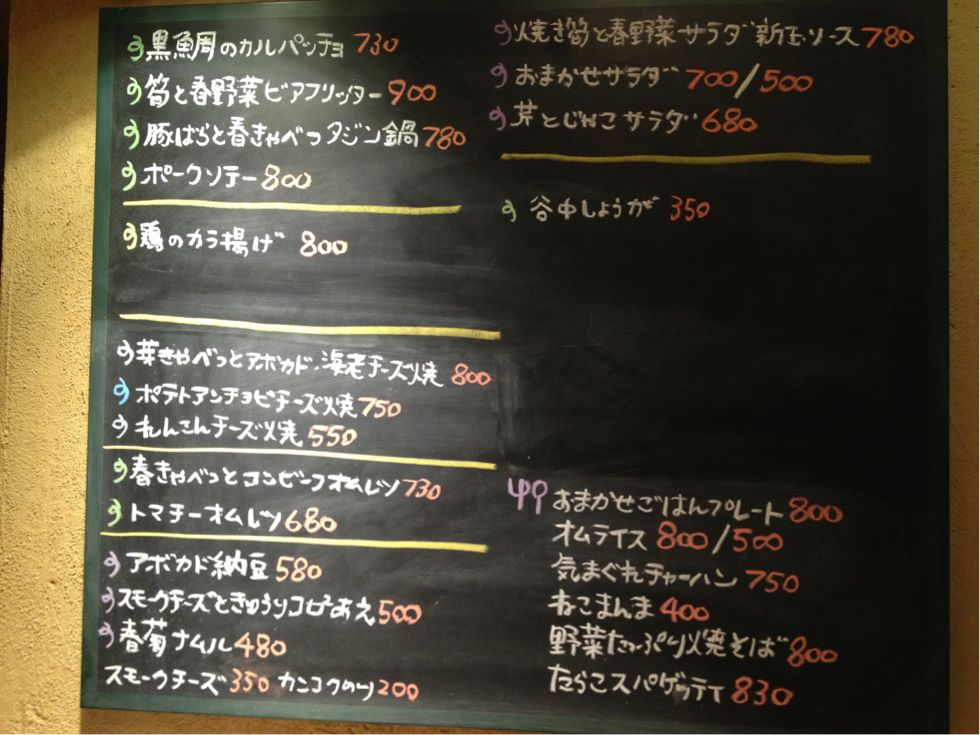 黒魚周のカルパッチョ 730
筍と春野菜ビアフリッター 900
豚ばらと春きゃべつタジン鍋 780
ポークソテー 800
鶏のカラ揚げ 800
芽きゃべつとアボカド・海老チーズ焼 800
ポテトアンチョビチーズ焼 750
れんこんチーズ焼 550
春きゃべつとコンビーフオムレツ 730
トマチーオムレツ 680
アボカド納豆 580
スモークチーズときゅうりコロピあえ 500
春菊ナムル 480
スモークチーズ 350 カンコクのり 200
焼き筍と春野菜サラダ新玉ソース 780
おまかせサラダ 700/500
芹とじゃこサラダ 680
谷中しょうが 350
おまかせごはんプレート 800
オムライス 800/500
気まぐれチャーハン 750
ねこまんま 400
野菜たっぷり焼そば 800
たらこスパゲッティ 830